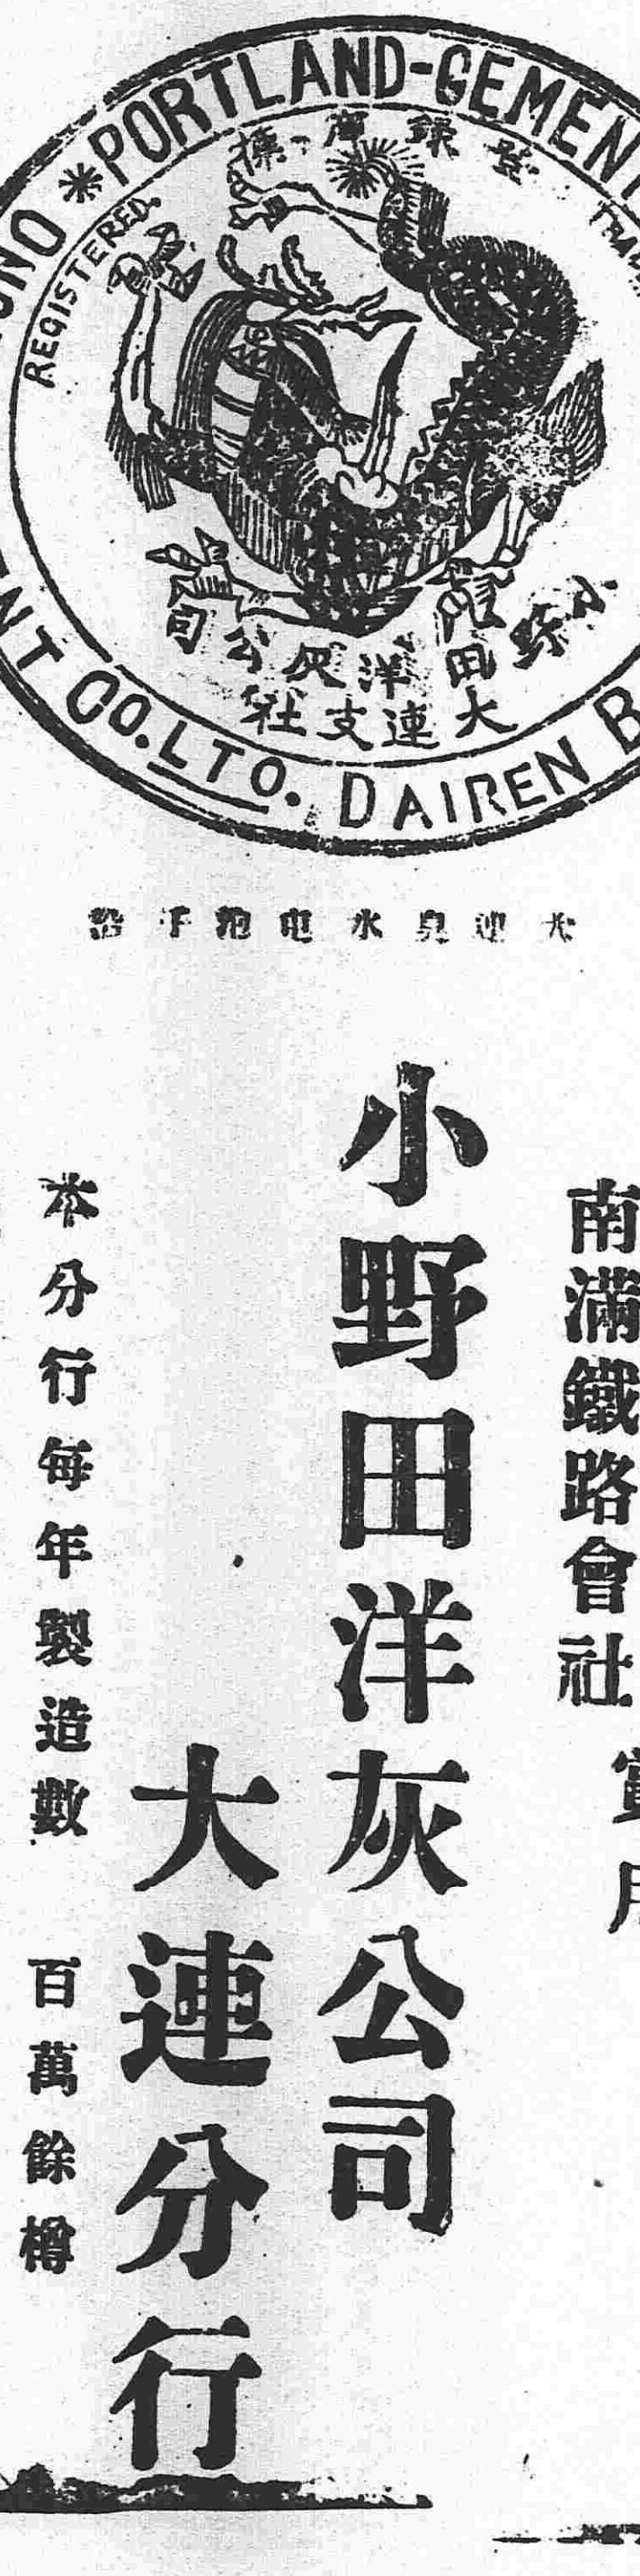 *PORTLAND-CEMEN
REGISTERED.
登錄商標
小野田洋灰公司
大連支社
NT CO. LTD. DAIREN B
大連泉水屯泡子沿
南滿鐵路會社
小野田洋灰公司
大連分行
本分行每年製造數 百萬餘樽